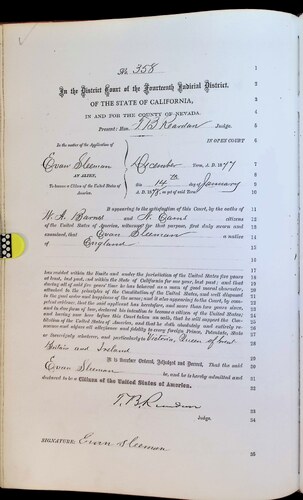 No. 358
In the District Court of the Fourteenth Judicial District,
OF THE STATE OF CALIFORNIA,
IN AND FOR THE COUNTY OF NEVADA.
Present: Hon. T. B. Reardan Judge.
IN OPEN COURT
In the matter of the Application of
Evan Sleeman
AN ALIEN,
To become a Citizen of the United States of America.
December Term, A. D. 1877
this 14th day of January
A. D. 1878, as yet of said Term
It appearing to the satisfaction of this Court, by the oaths of
W. A. and citizens
of the United States of America, witnesses for that purpose, first duly sworn and
examined, that Evan Sleeman a native
of England
has resided within the limits and under the jurisdiction of the United States five years
at least, last past, and within the State of California for one year, last past; and that
during all of said five years' time he has behaved as a man of good moral character,
attached to the principles of the Constitution of the United States, and well disposed
to the good order and happiness of the same; and it also appearing to the Court, by
petent evidence, that the said applicant has heretofore, and more than two years since,
and in due form of law, declared his intention to become a citizen of the United States;
and having now here before this Court taken an oath, that he will support the
of the United States of America, and that he doth absolutely and entirely re-
nounce and abjure all allegiance and fidelity to every foreign Prince, Potentate, State
or Sovereignty whatever, and particularly to Victoria, Queen of Great
Britain and Ireland
It is therefore Ordered, Adjudged and Decreed, That the said
Evan Sleeman be, and he is hereby admitted and
declared to be a Citizen of the United States of America.
T. B. Reardan
Judge.
SIGNATURE: Evan Sleeman
1
2
3
4
5
6
7
8
9
10
11
12
13
14
15
16
17
18
19
20
21
22
23
24
25
26
27
28
29
30
31
32
33
34
35